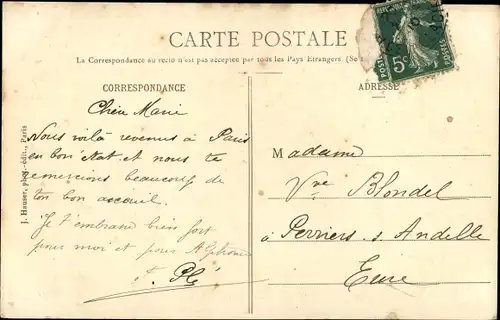 CARTE POSTALE
La Correspondance au recto n'est pas acceptée par tous les Pays Etrangers. (Se
CORRESPONDANCE
ADRESSE
5c
POSTES
J. Hauser, phot.-édit., Paris
Chère Marie
Nous voilà revenus à Paris
en bon état et nous te
remercions beaucoup de
ton bon accueil.
Je t'embrasse bien fort
pour moi et pour Alphonse
Madame
Vve Blondel
à Perriers s. Andelle
Eure